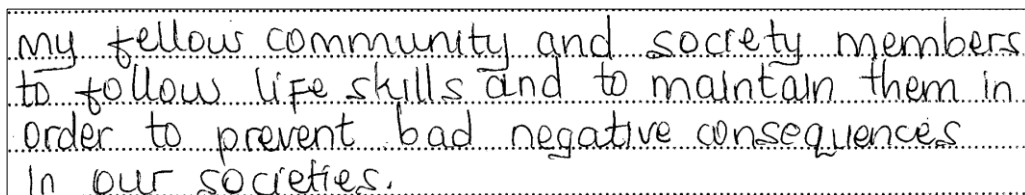 my fellow community and society members
to follow life skills and to maintain them in
order to prevent bad negative consequences
in our societies.